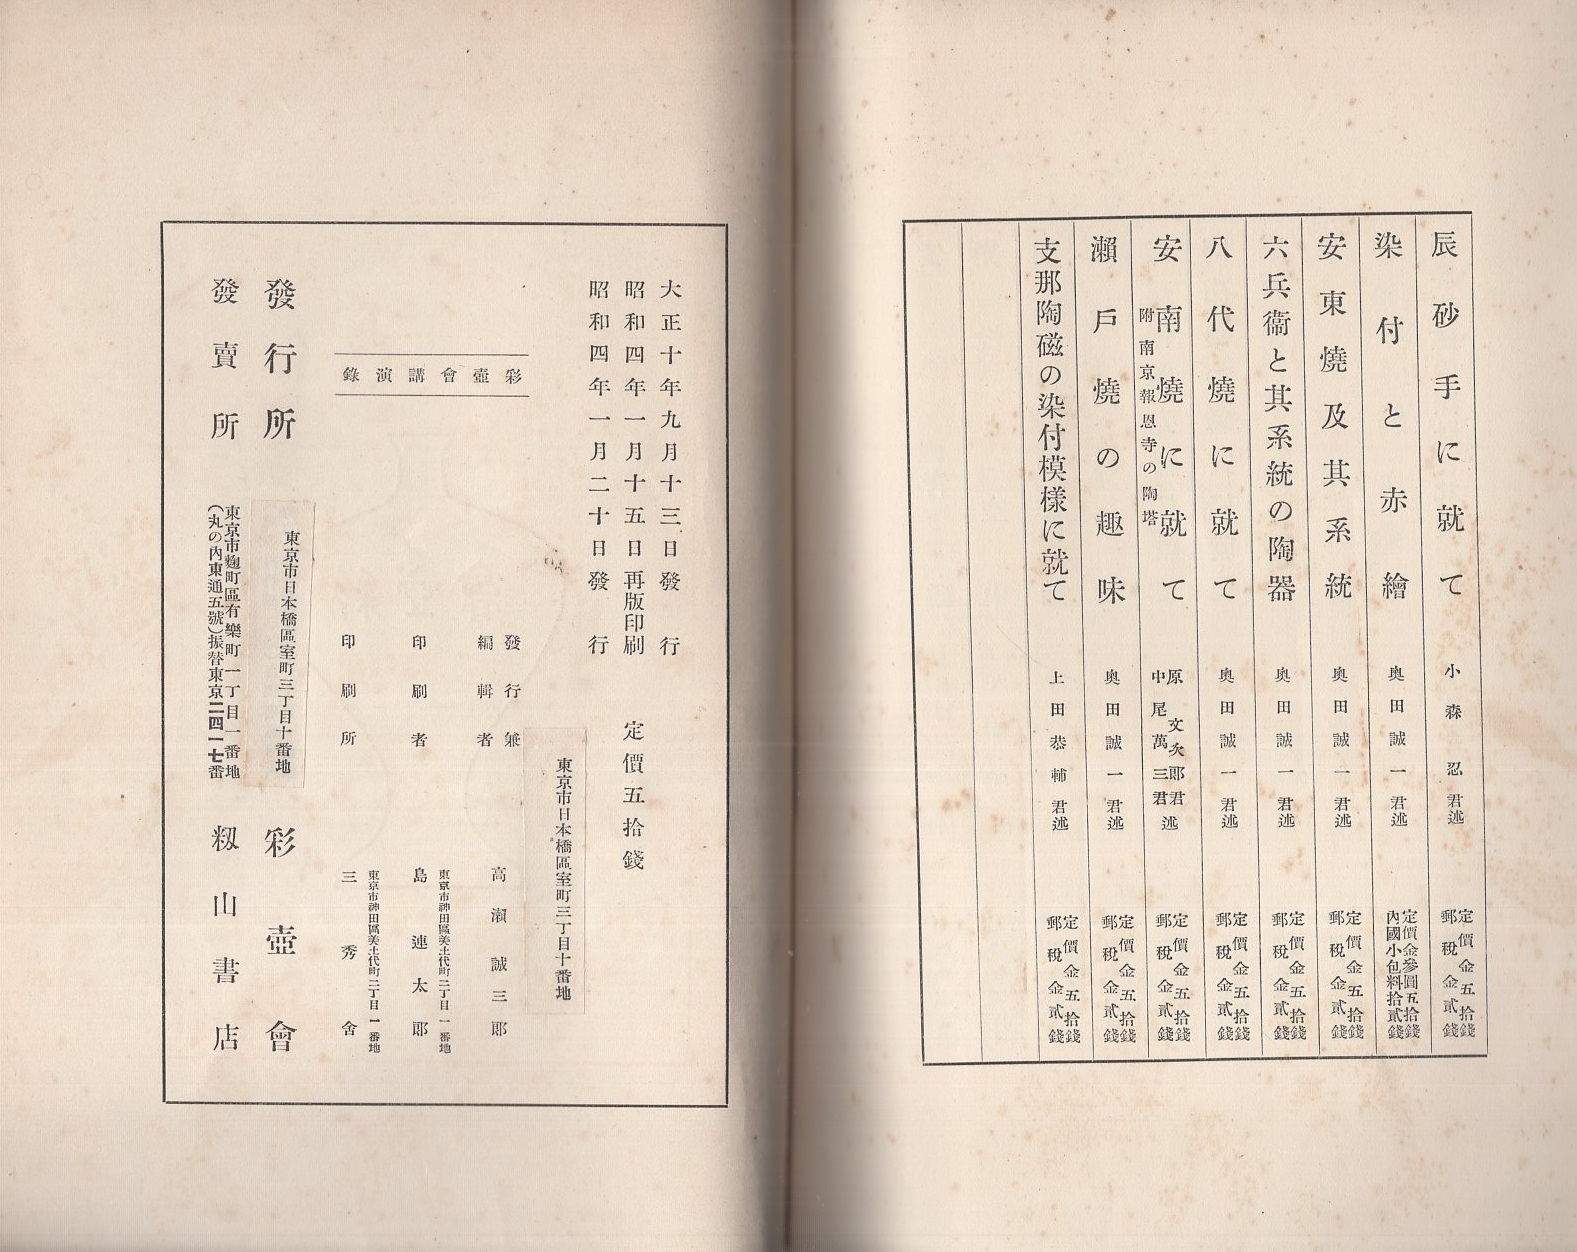 辰砂手に就て
小森忍君述
定價金五拾錢
郵稅金貳錢
染付と赤繪
奥田誠一君述
定價金參圓五拾錢
內國小包料拾貳錢
安東燒及其系統
奥田誠一君述
定價金五拾錢
郵稅金貳錢
六兵衞と其系統の陶器
奥田誠一君述
定價金五拾錢
郵稅金貳錢
八代燒に就て
奥田誠一君述
定價金五拾錢
郵稅金貳錢
安南燒に就て
附南京報恩寺の陶塔
原文次郎君
中尾萬三君
述
定價金五拾錢
郵稅金貳錢
瀨戶燒の趣味
奥田誠一君述
定價金五拾錢
郵稅金貳錢
支那陶磁の染付模樣に就て
上田恭輔君述
定價金五拾錢
郵稅金貳錢
大正十年九月十三日發行
昭和四年一月十五日再版印刷
昭和四年一月二十日發行
定價五拾錢
彩壺會講演錄
東京市日本橋區室町三丁目十番地
發行兼
編輯者
高瀨誠三郎
東京市神田區美土代町二丁目一番地
印刷者
島連太郎
東京市神田區美土代町二丁目一番地
印刷所
三秀舍
東京市日本橋區室町三丁目十番地
發行所
彩壺會
發賣所
東京市麴町區有樂町一丁目一番地
(丸の內東通五號)振替東京二四一七番
籾山書店